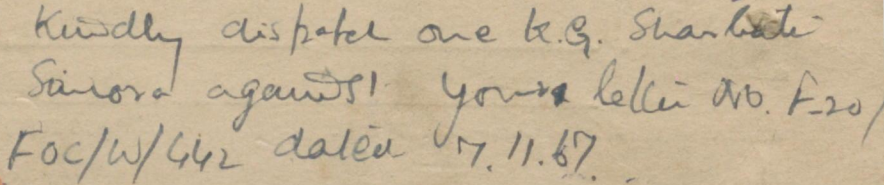 Kindly dispatch one K.G. Sharbati
Sonora against your letter No. F-20/
FOC/W/442 dated 7.11.67.